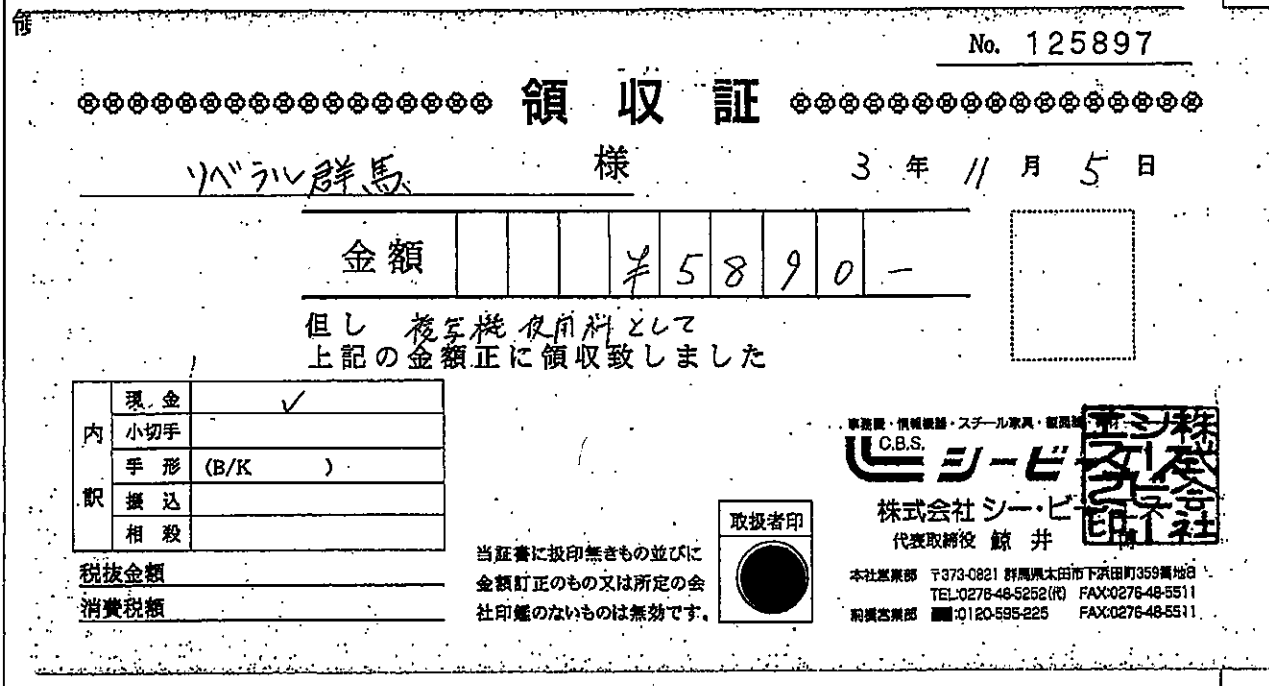 領
No. 125897
領収証
リベラル群馬 様 3年11月5日
金額 ¥5890-
但し 複写機使用料として
上記の金額正に領収致しました
内訳
現金 ✓
小切手
手形 (B/K )
振込
相殺
税抜金額
消費税額
当証書に扱印無きもの並びに
金額訂正のもの又は所定の会
社印鑑のないものは無効です。
取扱者印
事務機・情報機器・スチール家具・
C.B.S.
シービー
株式会社 シー・ビー
代表取締役 鯨井
本社営業部 〒373-0821 群馬県太田市下浜田町359番地8
TEL:0276-46-5252(代) FAX:0276-48-5511
前橋営業部 :0120-595-225 FAX:0276-48-5511